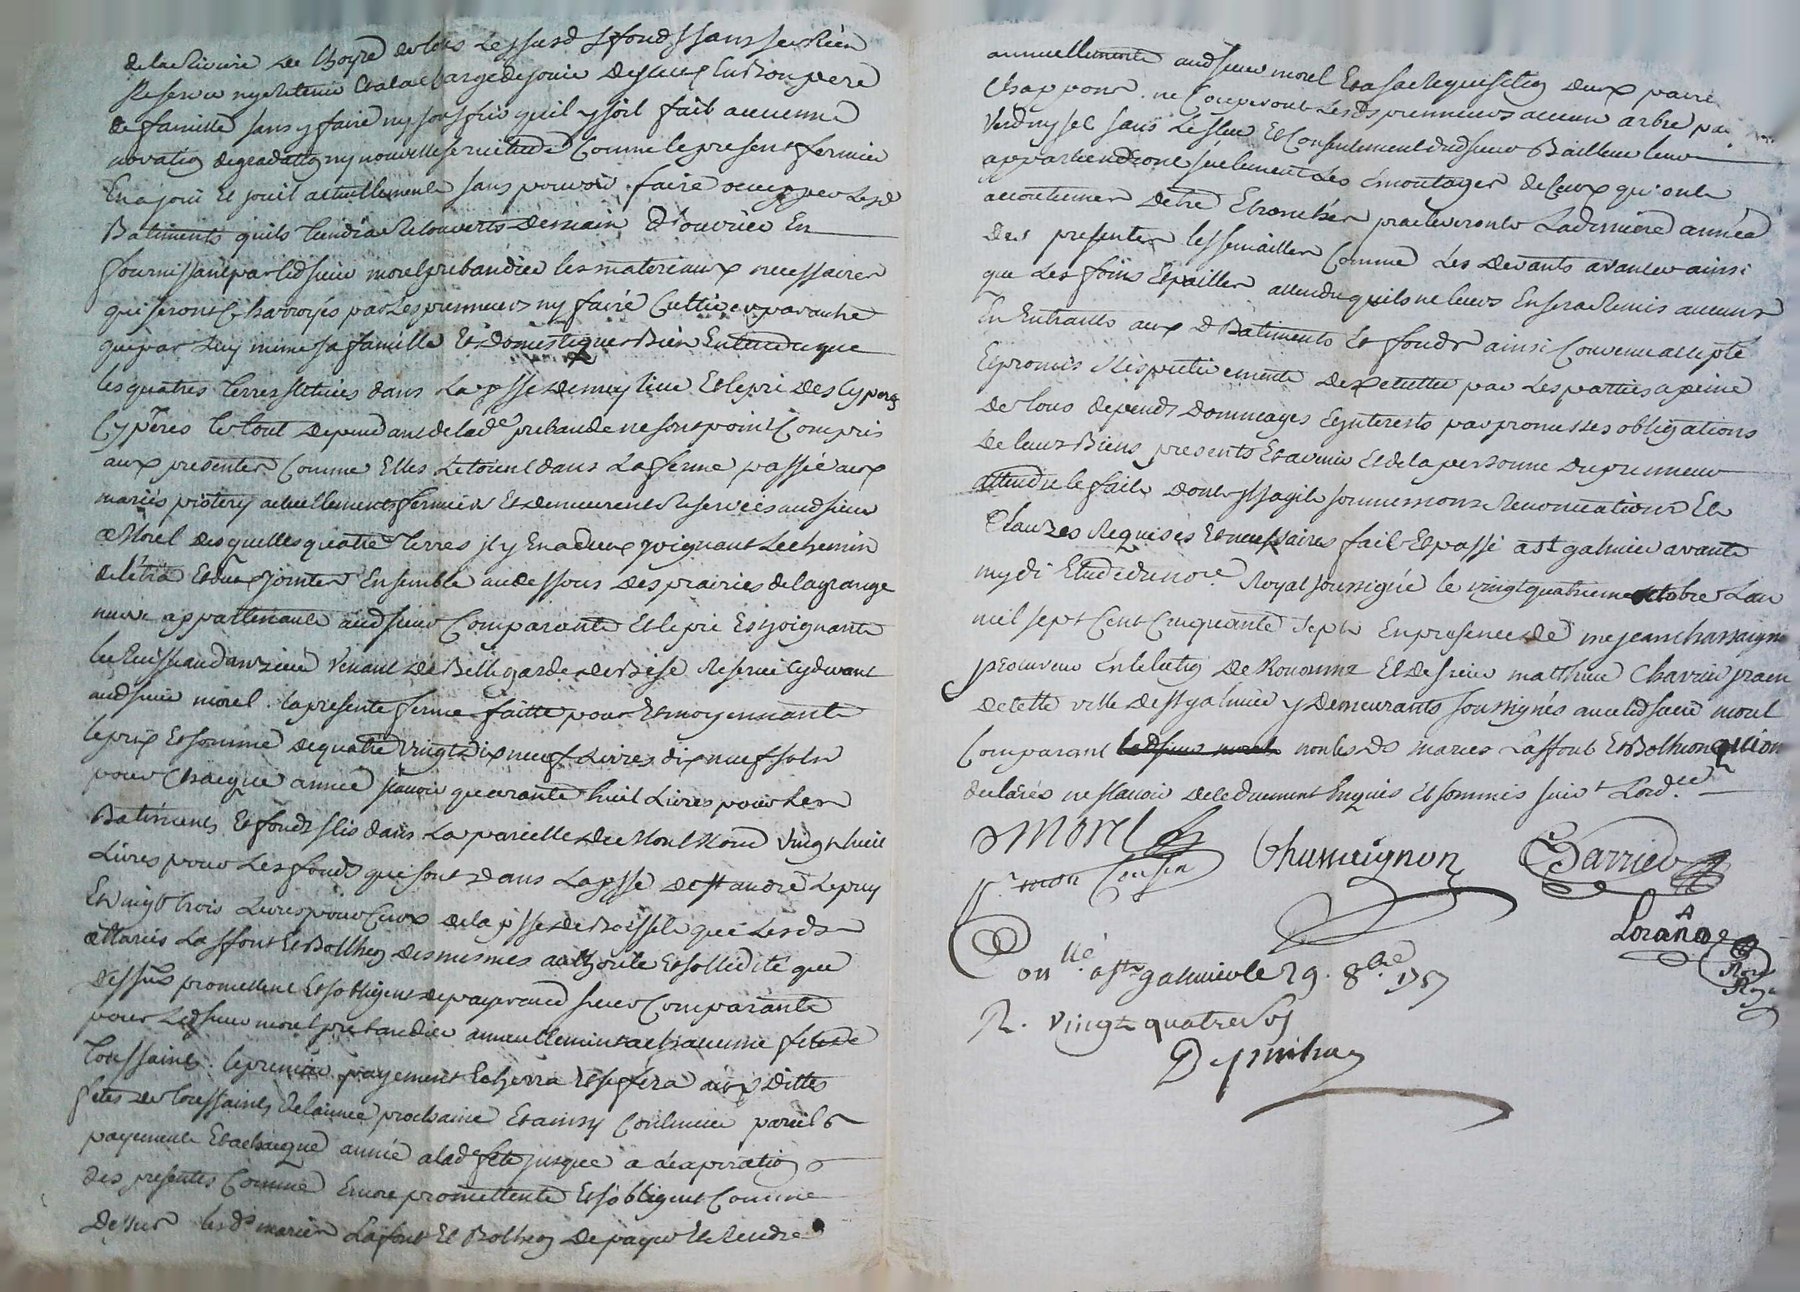 de la Riviere de Lhoyre et tous lessusd fonds sans se Rien
Reserver ny Retenir et a la charge de jouir desceux en Bon pere
de famille sans y faire ny souffrir quil y soit fait aucunne
novation degradation ny nouvelle servictude Comme le present fermier
En a joui et jouit actuellement sans pouvoir faire occupper lesd
Batiments quils tiendra Recouverts de main d'ouvrier En
fournissant par led sieur morel prebandier les materiaux necessaires
qui seront Charroyés par les prenneurs ny faire Cultiver par autre
que par Luy mime sa famille Et Domestiques Bien Entendu que
les quatres terres scituées dans La psse de meylieu Et le pré des
Cypères le tout dependant de lade prebande ne sont point Compris
aux presentes Comme Elles letoient dans La ferme passée aux
mariés pistery actuellements fermiers Et demeurent Reservées aud sieur
Morel desquelles quatre terres il y En a deux joignant Le chemin
de letra Et deux jointes Ensemble au dessous des prairies de la grange
neuve appartenante aud sieur Comparante Et le pré Est joignante
le Ruisseau danzieux Venant de Bellegarde de Bise Reservé cydevant
aud sieur morel. la presente ferme faitte pour Et moyennante
le prix Et somme de quatre vingt dix neuf Livres dix neuf sols
pour Chacque année sçavoir quarante huit Livres pour Les
Batiments Et fonds scis dans La parcelle de Mont Rond Vingt huit
Livres pour Les fonds qui sont dans La psse de st andré Le puy
Et vingt trois Livres pour Ceux de la psse de Boisset que Lesds
Mariés Laffont Et Bolthion des mesmes authorite Et sollidité que
dessus promettent Et sobligent de payer aud sieur Comparante
pour Led sieur morel prebandier annuellement a chacunne fete de
Toussaint le premier payement Echerra Et se fera aux dittes
fetes de toussaints de lannee prochaine Et ainsy Continuer pareils
payements Et a chacque année a lade fete jusque a Lexpiration
des presentes Comme Encore promettent Et sobligent Comme
dessus lesds mariés Laffont Et Bolthion de payer Et Rendre
annuellemente aud sieur morel Et a sa Requisition deux paire
Chappons, ne Couperont Lesds prenneurs aucun arbre par
Verd ny sec sans Lesseu Et Consentement dud sieur Bailleur leur
appartiendront seulement Les Emontages de Ceux qui ont
accoutumer detre Etronchés preleveront La derniere année
des presentes les semailles Comme Les devants avancer ainsi
que Les foins Et pailles attendu quils ne leurs En sera Remis aucuns
En Entrant aux ds Batiments Et fonds ainsi Convenu accepté
Et promis Respectivemente dexecutter par Les parties a peine
de tous depends Dommages Et Interests par promesses obligations
de leurs Biens presents Et avenir Et de la personne du prenneur
attendu le fait dont il s'agit soumissions Renonciations Et
Clauzes Requises Et necessaires fait Et passé a st galmier avante
mydi Etude du nore Royal soussigné le vingt quatrieme octobre Lan
mil sept Cent Cinquante Sept En presence de me jean chassaignon
procureur En lelection de Roanne Et de sieur mathieu Charrier praen
de cette ville de st galmier y demeurants soussignés avec led sieur morel
Comparant led sieur morel non lesds mariés Laffont Et Bolthion qui ont
declarés ne sçavoir de ce duement Enquis Et sommés suivt Lordce
Morel
pr mon Cousin
Chassaignon
Charrier
Lorano
No re
Roya
Conllé a st galmier le 29. 8bre 1757
R. vingt quatre sols